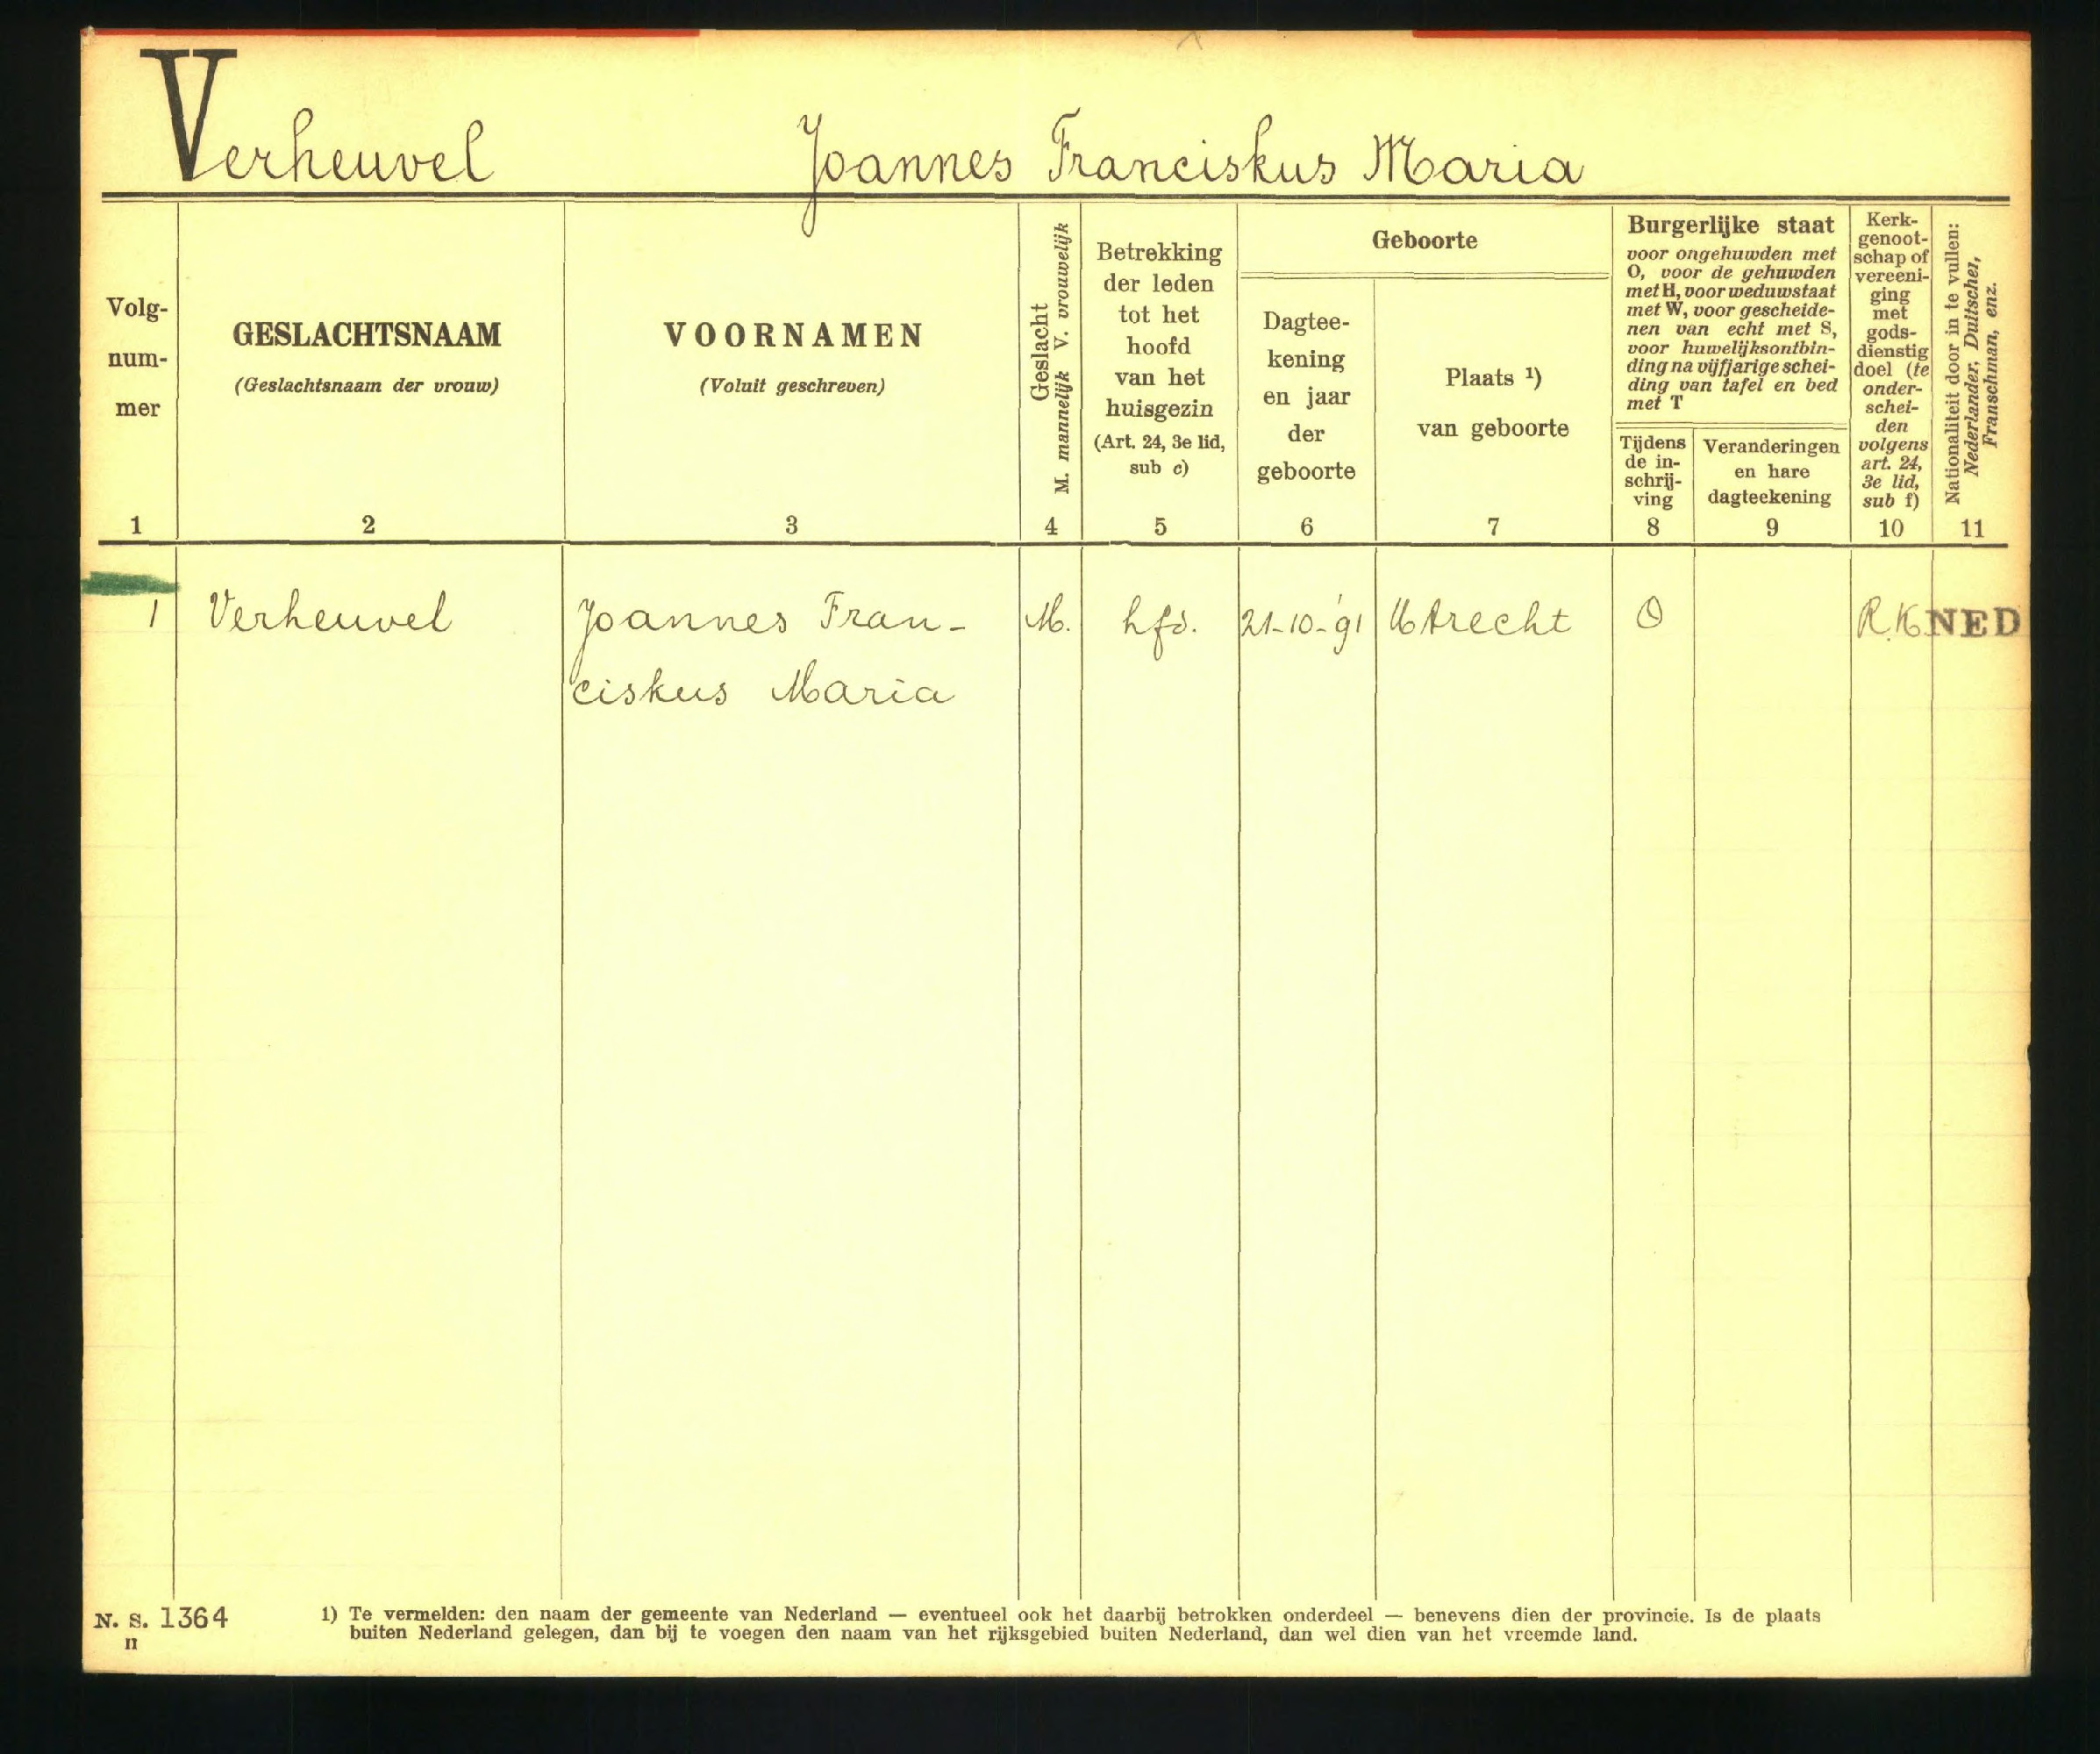 Verheuvel Joannes Franciskus Maria
Volg-
num-
mer
1
GESLACHTSNAAM
(Geslachtsnaam der vrouw)
2
VOORNAMEN
(Voluit geschreven)
3
Geslacht
M. mannelijk V. vrouwelijk
4
Betrekking
der leden
tot het
hoofd
van het
huisgezin
(Art. 24, 3e lid,
sub c)
5
Geboorte
Dagtee-
kening
en jaar
der
geboorte
6
Plaats ¹)
van geboorte
7
Burgerlijke staat
voor ongehuwden met
O, voor de gehuwden
met H, voor weduwstaat
met W, voor gescheide-
nen van echt met S,
voor huwelijksontbin-
ding na vijfjarige schei-
ding van tafel en bed
met T
Tijdens
de in-
schrij-
ving
8
Veranderingen
en hare
dagteekening
9
Kerk-
genoot-
schap of
vereeni-
ging
met
gods-
dienstig
doel (te
onder-
schei-
den
volgens
art. 24,
3e lid,
sub f)
10
Nationaliteit door in te vullen:
Nederlander, Duitscher,
Franschman, enz.
11
1 Verheuvel Joannes Fran- M. hfd. 21-10-'91 Utrecht O R.K NED
ciskus Maria
N. S. 1364
II
1) Te vermelden: den naam der gemeente van Nederland — eventueel ook het daarbij betrokken onderdeel — benevens dien der provincie. Is de plaats
buiten Nederland gelegen, dan bij te voegen den naam van het rijksgebied buiten Nederland, dan wel dien van het vreemde land.